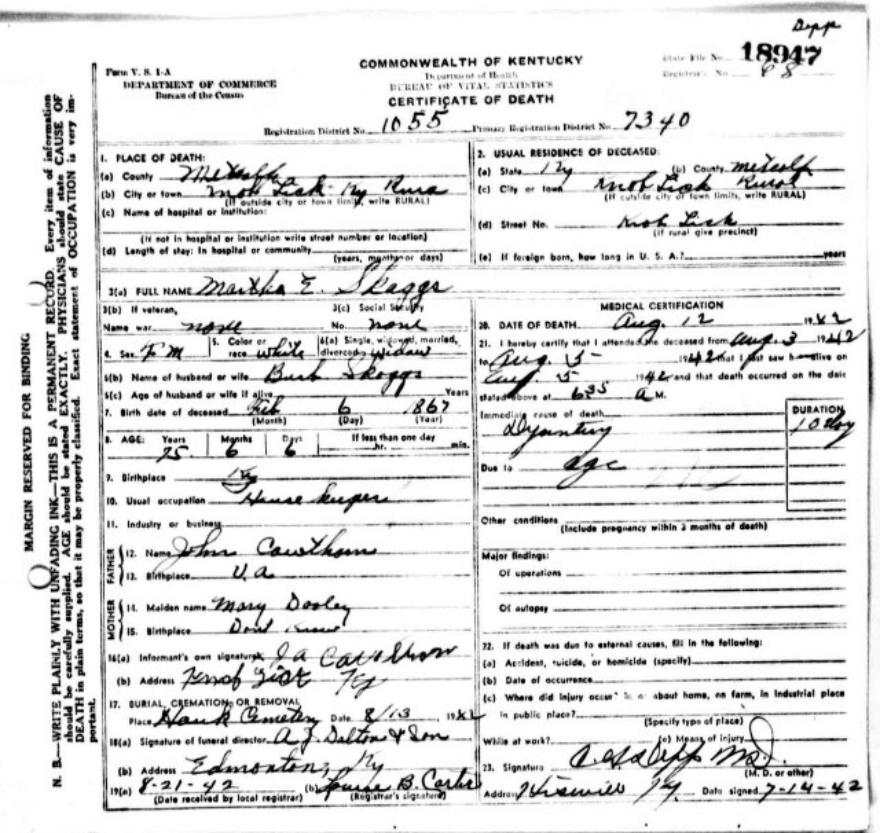 Depp
COMMONWEALTH OF KENTUCKY
Department of Health
BUREAU OF VITAL STATISTICS
CERTIFICATE OF DEATH
Form V. S. 1-A
DEPARTMENT OF COMMERCE
Bureau of the Census
State File No. 18947
Registrar's No. 68
Registration District No. 1055 Primary Registration District No. 7340
MARGIN RESERVED FOR BINDING
N. B.—WRITE PLAINLY WITH UNFADING INK—THIS IS A PERMANENT RECORD. Every item of information
should be carefully supplied. AGE should be stated EXACTLY. PHYSICIANS should state CAUSE OF
DEATH in plain terms, so that it may be properly classified. Exact statement of OCCUPATION is very im-
portant.
1. PLACE OF DEATH:
(a) County
(b) City or town Knob Lick Ky Rura
(If outside city or town limits, write RURAL)
(c) Name of hospital or institution:
(If not in hospital or institution write street number or location)
(d) Length of stay: In hospital or community
(years, months or days)
2. USUAL RESIDENCE OF DECEASED:
(a) State Ky (b) County Metcalf
(c) City or town Knob Lick Rural
(If outside city or town limits, write RURAL)
(d) Street No. Knob Lick
(If rural give precinct)
(e) If foreign born, how long in U. S. A.? years
3(a) FULL NAME Martha E. Skaggs
3(b) If veteran,
Name war none
3(c) Social Security
No. none
4. Sex F M
5. Color or
race white
6(a) Single, widowed, married,
divorced widow
6(b) Name of husband or wife Burb Skaggs
6(c) Age of husband or wife if alive Years
7. Birth date of deceased Feb 6 1867
(Month) (Day) (Year)
8. AGE: Years Months Days If less than one day
75 6 6 hr. min.
9. Birthplace Ky
10. Usual occupation House keeper
11. Industry or business
FATHER
12. Name John Cawthorn
13. Birthplace V.a
MOTHER
14. Maiden name Mary Dooley
15. Birthplace Dont Know
16(a) Informant's own signature J A Cawthorn
(b) Address Knob Lick Ky
17. BURIAL, CREMATION, OR REMOVAL
Place Cemetery Date 8/13 1942
18(a) Signature of funeral director A. J. Dalton & Son
(b) Address Edmonton, Ky
19(a) 8-21-42 (b) Louise B. Carter
(Date received by local registrar) (Registrar's signature)
MEDICAL CERTIFICATION
20. DATE OF DEATH Aug. 12 1942
21. I hereby certify that I attended the deceased from Aug. 3 1942
to Aug. 5 1942 that I last saw h alive on
Aug. 5 1942 and that death occurred on the date
stated above at 6:35 a M.
Immediate cause of death
DURATION
Dysentery 10 day
Due to age
Other conditions
(Include pregnancy within 3 months of death)
Major findings:
Of operations
Of autopsy
22. If death was due to external causes, fill in the following:
(a) Accident, suicide, or homicide (specify)
(b) Date of occurrence
(c) Where did injury occur in or about home, on farm, in industrial place
in public place?
(Specify type of place)
While at work? (e) Means of injury
23. Signature Depp MD.
(M. D. or other)
Address Hiseville Ky. Date signed 7-14-42